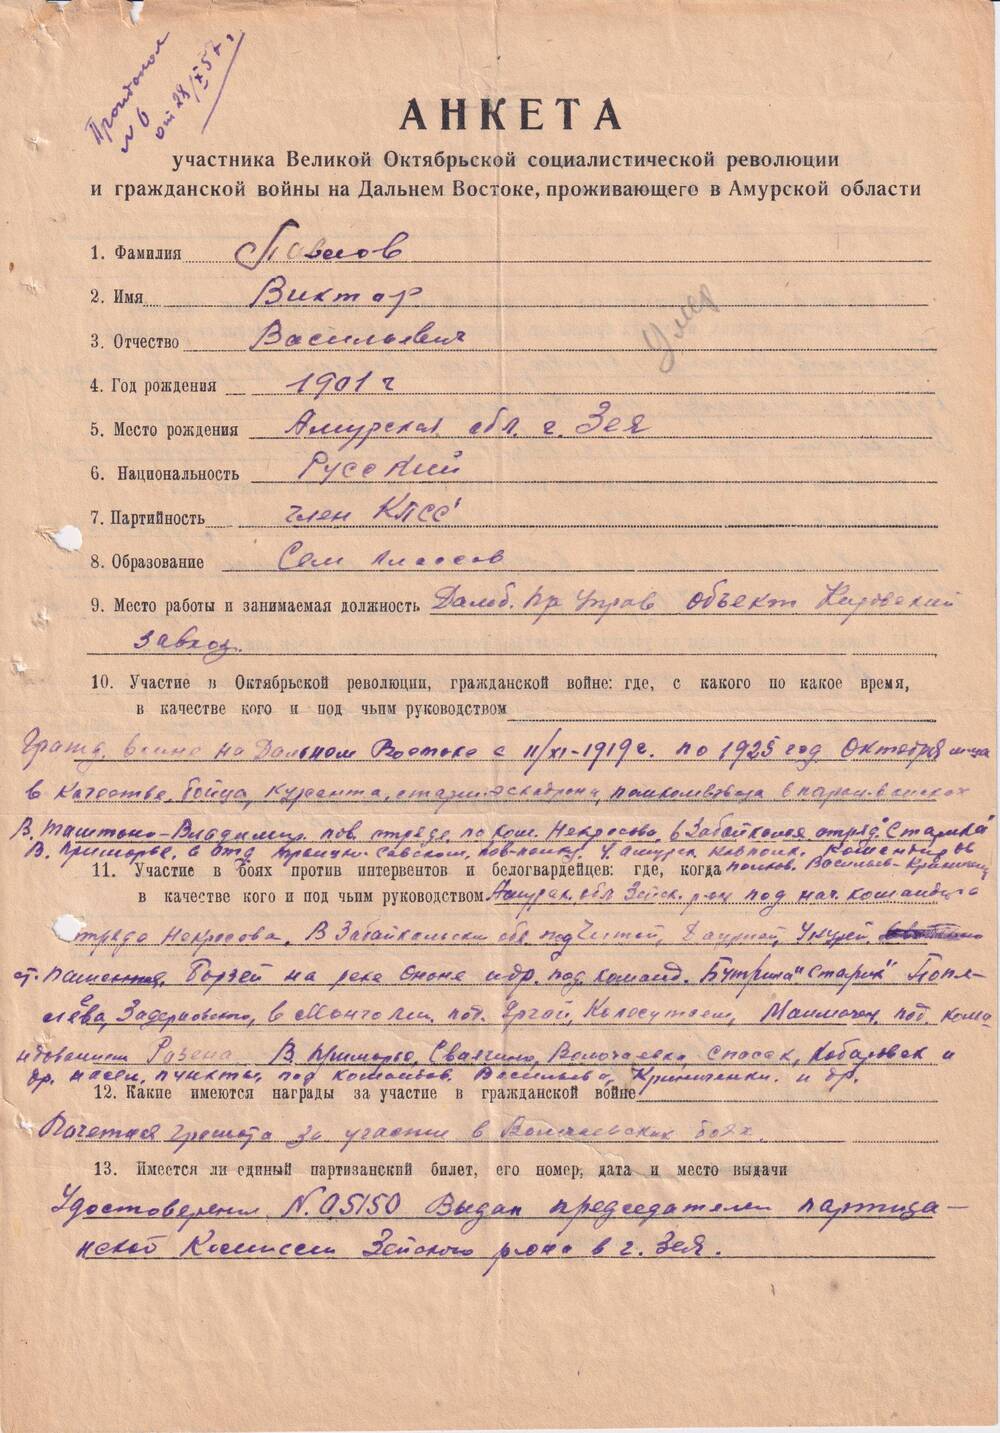 Протокол
№ 6
от 28/X 57 г
АНКЕТА
участника Великой Октябрьской социалистической революции
и гражданской войны на Дальнем Востоке, проживающего в Амурской области
1. Фамилия Павлов
2. Имя Виктор
Умер
3. Отчество Васильевич
4. Год рождения 1901 г
5. Место рождения Амурская обл. г. Зея
6. Национальность Русский
7. Партийность член КПСС
8. Образование Сем классов
9. Место работы и занимаемая должность Управ объект Кировский
завхоз.
10. Участие в Октябрьской революции, гражданской войне: где, с какого по какое время,
в качестве кого и под чьим руководством
Гражд. война на Дальном Востоке с 11/XI-1919 г. по 1925 год Октября м-ца
в качестве бойца, курсанта, эскадрона, помкомвзвода в
В. Таштано-Владимир. пов. отряде, по ком. Некрасова, в Забайкалья отряд "Старика"
В. Приморье, в отд Троицко-Савском,
11. Участие в боях против интервентов и белогвардейцев: где, когда
в качестве кого и под чьим руководством Амурск. обл Зейск. р-он под нач. командира
отряда Некрасова. В Забайкальски обл. под Читой, Даурией,
ст. Борзей на реке Ононе и др. под команд. "Старик" Попе-
лева, в Монголии под Ургой, под. кома-
ндованием В Приморье, Свиягино, Волочаевка, Спасск, Хабаровск и
др. насел. пункты, под командов. Васильева, и др.
12. Какие имеются награды за участие в гражданской войне
Почетная грамота за участие в Волочаевских боях.
13. Имеется ли единый партизанский билет, его номер, дата и место выдачи
Удостоверения N. 05150 Выдан председателем партиза-
нской Комиссии Зейского р-она в г. Зея.